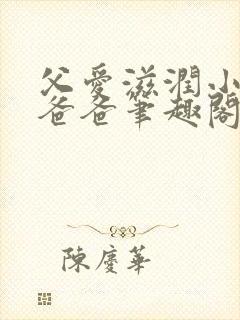 父愛滋潤小
爸爸筆趣閣
陳慶華